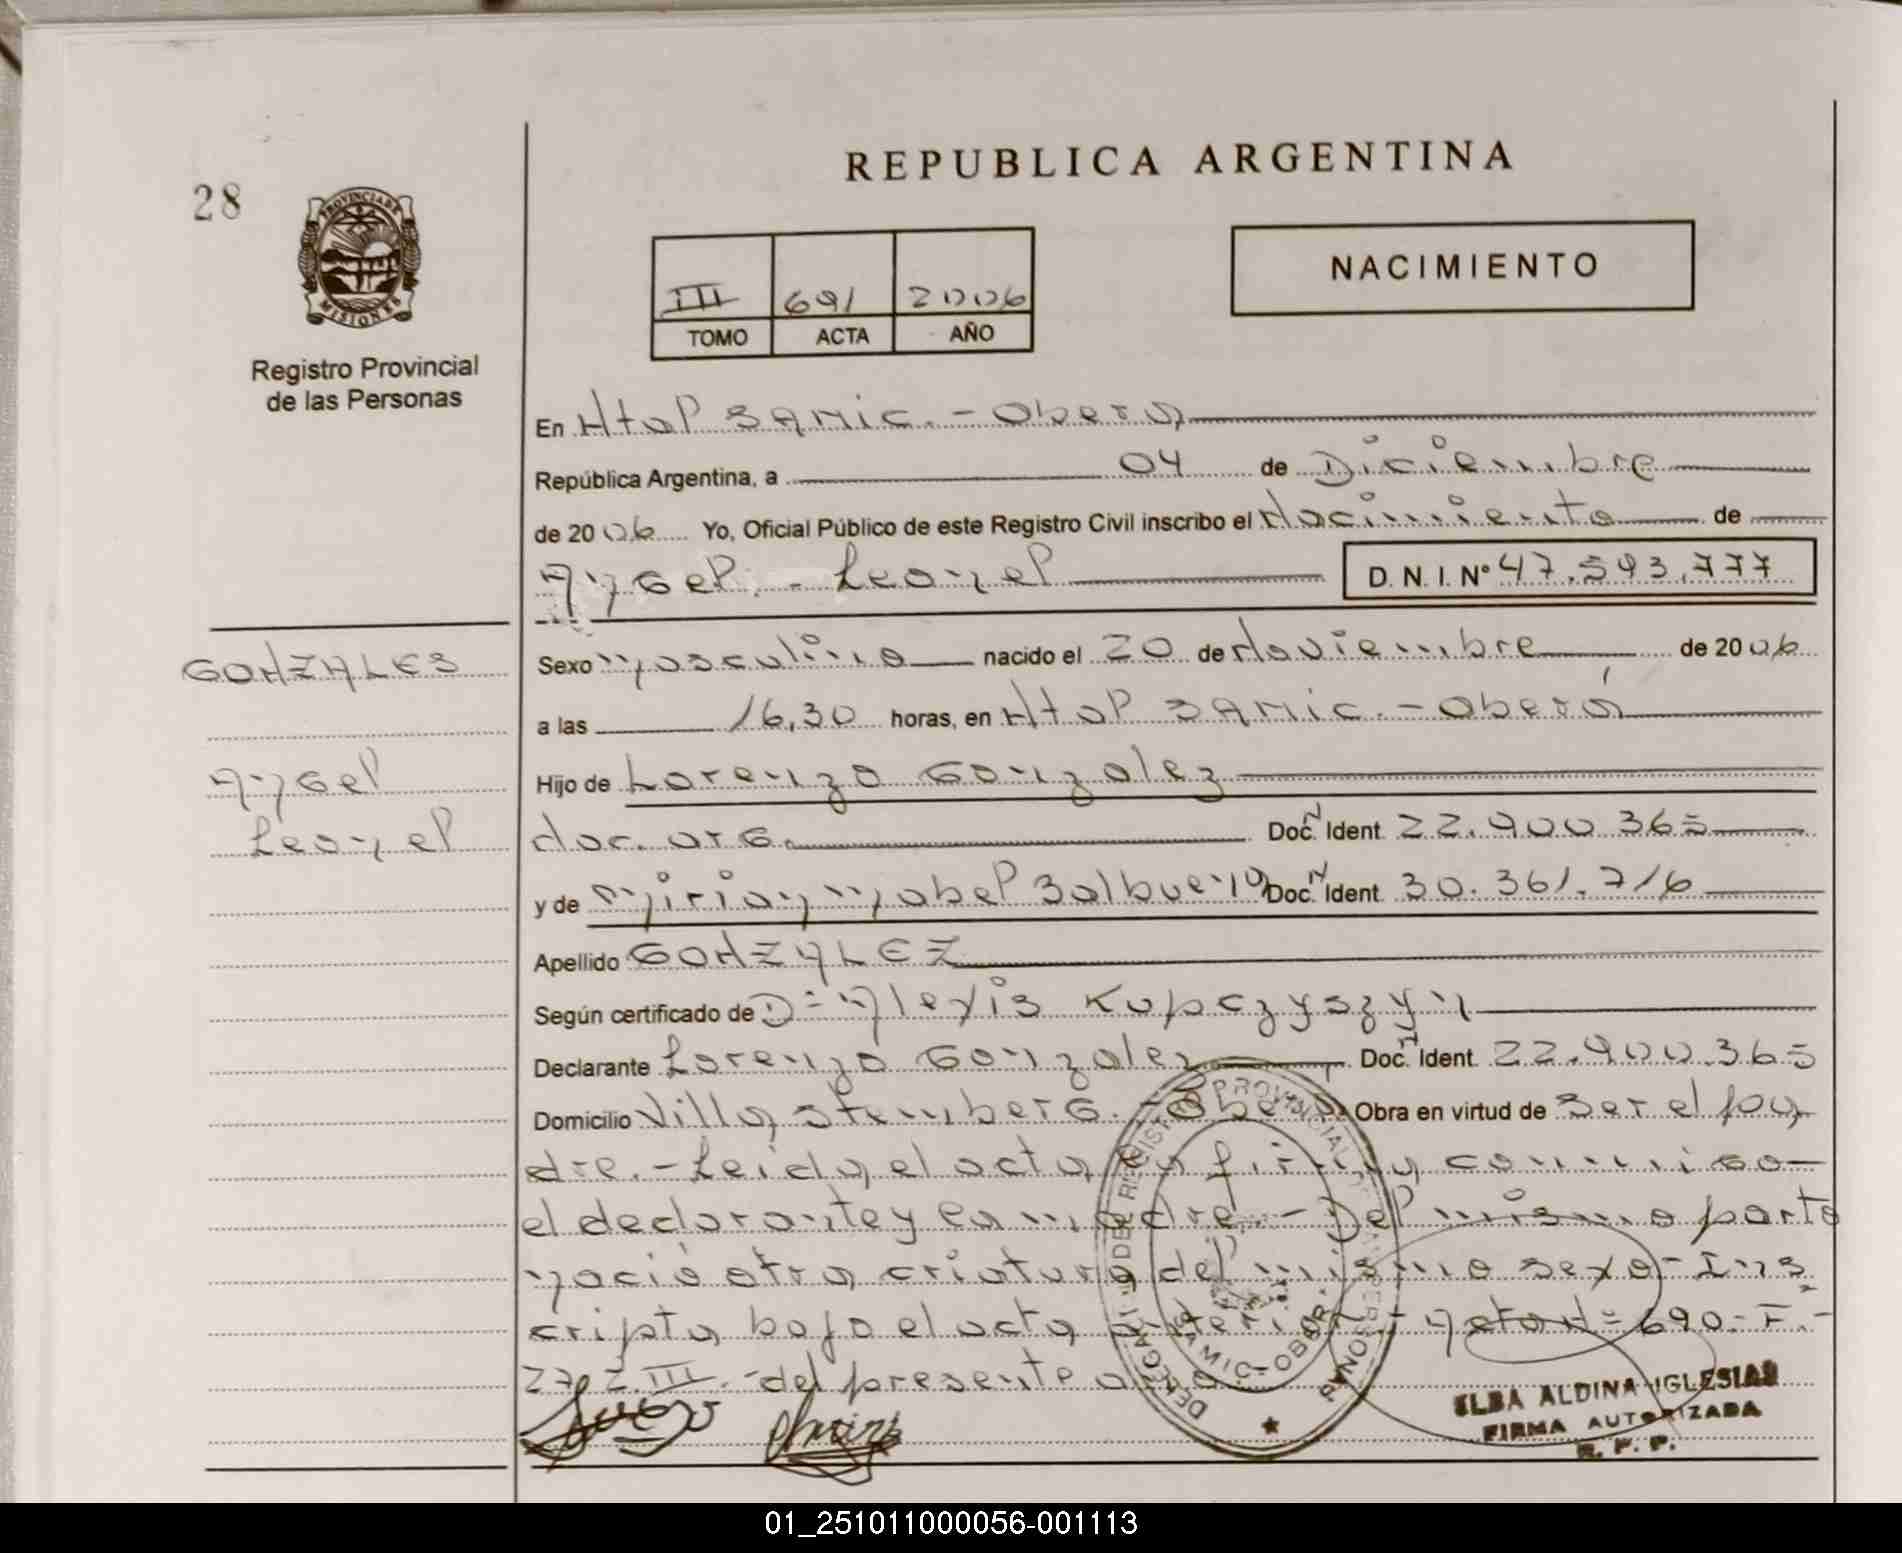 28
PROVINCIA DE
MISIONES
Registro Provincial
de las Personas
REPUBLICA ARGENTINA
III 691 2006
TOMO ACTA AÑO
NACIMIENTO
En Htal SAMic. - Obera
República Argentina, a 04 de Diciembre
de 2006 Yo, Oficial Público de este Registro Civil inscribo el Nacimiento de
Angel - Leonel D. N. I. Nº 47.593.777
GONZALES
Sexo masculino nacido el 20 de Noviembre de 2006
a las 16,30 horas, en Htal SAMic. - Oberá
Angel
Leonel
Hijo de Lorenzo Gonzalez
Nac. arg. Doc. Ident. 22.900.365
y de Miriam Mabel Balbuena Doc. Ident. 30.361.716
Apellido GONZALEZ
Según certificado de D= Alexis Kupczyszyn
Declarante Lorenzo Gonzalez Doc. Ident. 22.900.365
Domicilio Villa Stemberg. - Obera Obra en virtud de ser el pa
dre. - Leida el acta la firma conmigo
el declarante y la madre. - Del mismo parto
nació otra criatura del mismo sexo - Ins
cripta bajo el acta anterior - Acta N= 690 - F. -
27 T. III. - del presente año
DELEGACION DE REGISTRO PROVINCIAL DE LAS PERSONAS
SAMIC - OBERA
ELBA ALDINA IGLESIAS
FIRMA AUTORIZADA
R. P. P.
01_251011000056-001113